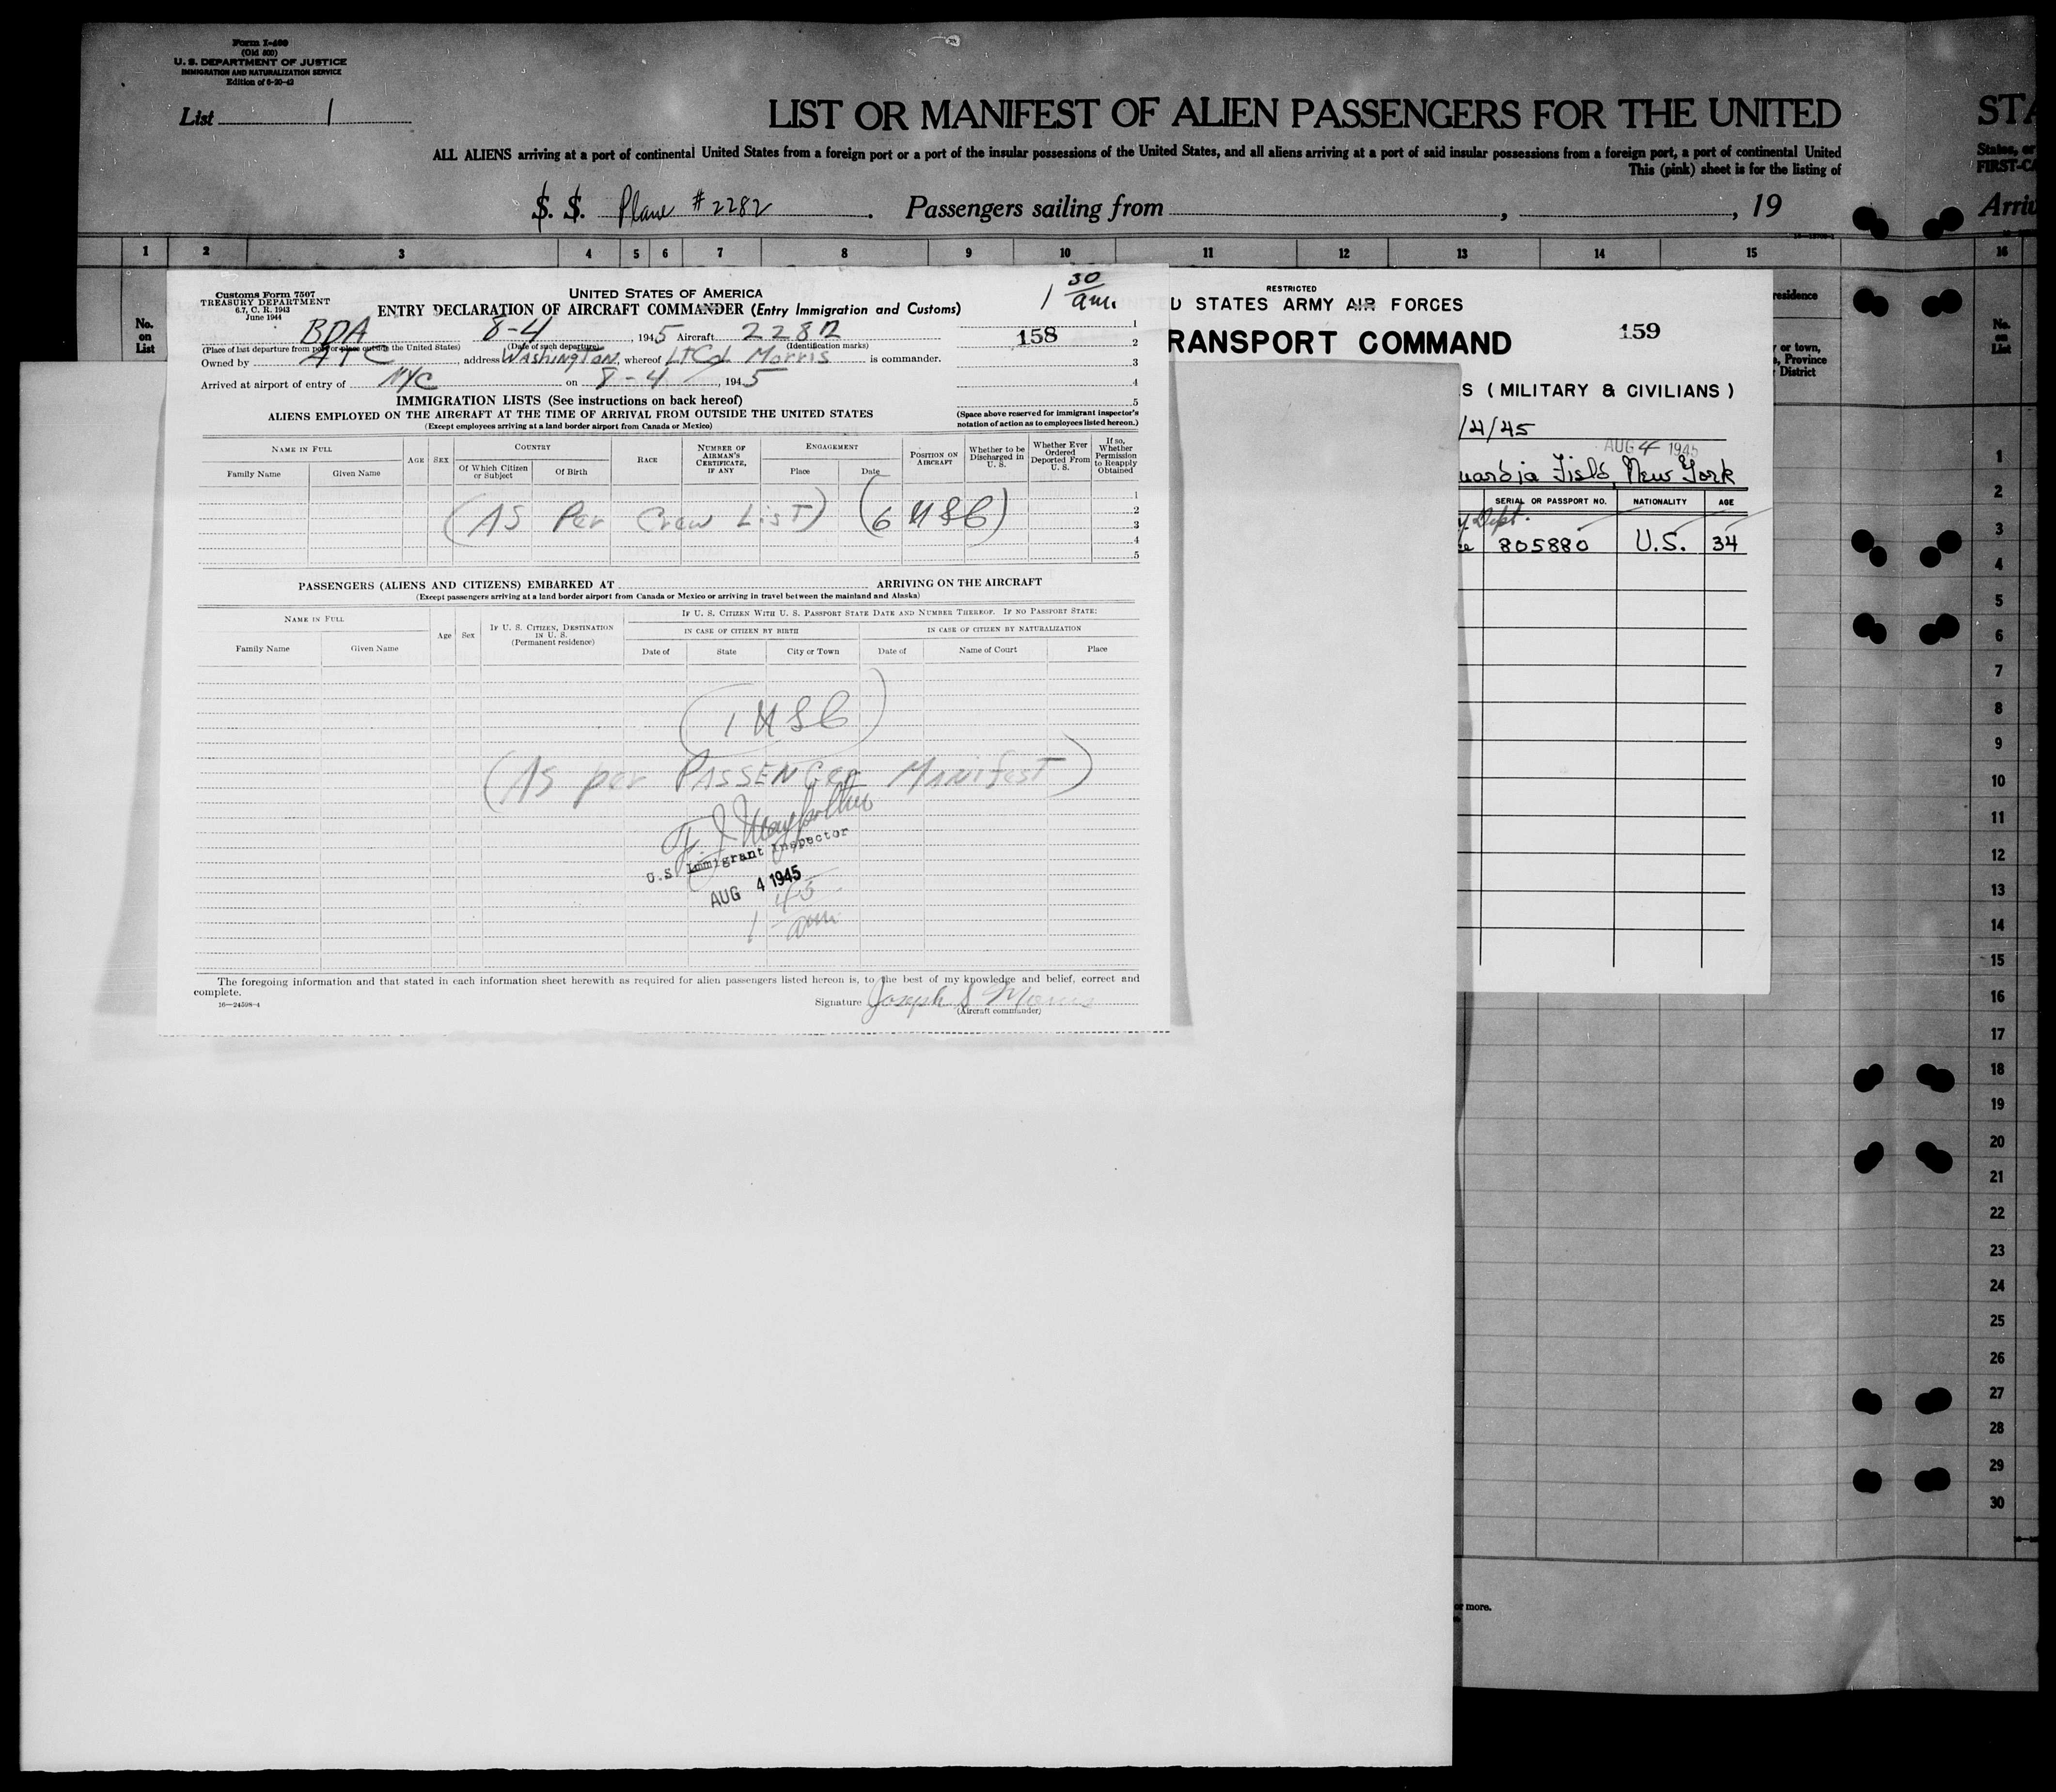 Form I-400
(Old 500)
U. S. DEPARTMENT OF JUSTICE
IMMIGRATION AND NATURALIZATION SERVICE
Edition of 6-20-43
List 1
LIST OR MANIFEST OF ALIEN PASSENGERS FOR THE UNITED
STA
ALL ALIENS arriving at a port of continental United States from a foreign port or a port of the insular possessions of the United States, and all aliens arriving at a port of said insular possessions from a foreign port, a port of continental United
States, or
This (pink) sheet is for the listing of
FIRST-CA
S. S. Plane #2282 . Passengers sailing from , , 19
Arriv
1 2 3 4 5 6 7 8 9 10 11 12 13 14 15 16
No.
on
List
Customs Form 7507
TREASURY DEPARTMENT
6.7, C. R. 1943
June 1944
UNITED STATES OF AMERICA
ENTRY DECLARATION OF AIRCRAFT COMMANDER (Entry Immigration and Customs)
1 30 am.
BDA 8-4, 1945 Aircraft 2282
158
(Place of last departure from port or place outside the United States) (Date of such departure) (Identification marks)
Owned by ATC, address Washington, whereof Lt Col Morris is commander.
Arrived at airport of entry of NYC on 8-4, 1945
1
2
3
4
5
IMMIGRATION LISTS (See instructions on back hereof)
ALIENS EMPLOYED ON THE AIRCRAFT AT THE TIME OF ARRIVAL FROM OUTSIDE THE UNITED STATES
(Except employees arriving at a land border airport from Canada or Mexico)
(Space above reserved for immigrant inspector's
notation of action as to employees listed hereon.)
NAME IN FULL
Family Name Given Name
AGE SEX
COUNTRY
Of Which Citizen or Subject Of Birth
RACE
NUMBER OF AIRMAN'S CERTIFICATE, IF ANY
ENGAGEMENT
Place Date
POSITION ON AIRCRAFT
Whether to be Discharged in U. S.
Whether Ever Ordered Deported From U. S.
If so, Whether Permission to Reapply Obtained
(AS Per Crew List) (6 USC)
1
2
3
4
5
PASSENGERS (ALIENS AND CITIZENS) EMBARKED AT ARRIVING ON THE AIRCRAFT
(Except passengers arriving at a land border airport from Canada or Mexico or arriving in travel between the mainland and Alaska)
NAME IN FULL
Family Name Given Name
Age Sex
IF U. S. CITIZEN, DESTINATION IN U. S.
(Permanent residence)
IF U. S. CITIZEN WITH U. S. PASSPORT STATE DATE AND NUMBER THEREOF. IF NO PASSPORT STATE:
IN CASE OF CITIZEN BY BIRTH IN CASE OF CITIZEN BY NATURALIZATION
Date of State City or Town Date of Name of Court Place
(1 USC)
(As per PASSENGER Manifest)
U.S. Immigrant Inspector
AUG 4 1945
1 45 am
The foregoing information and that stated in each information sheet herewith as required for alien passengers listed hereon is, to the best of my knowledge and belief, correct and
complete.
16—24598-4
Signature Joseph S Morris
(Aircraft commander)
RESTRICTED
D STATES ARMY AIR FORCES
159
RANSPORT COMMAND
S (MILITARY & CIVILIANS)
/4/45
AUG 4 1945
uardia Field, New York
SERIAL OR PASSPORT NO. NATIONALITY AGE
Dept.
805880 U.S. 34
residence
or town,
, Province
District
No.
on
List
1
2
3
4
5
6
7
8
9
10
11
12
13
14
15
16
17
18
19
20
21
22
23
24
25
26
27
28
29
30
or more.